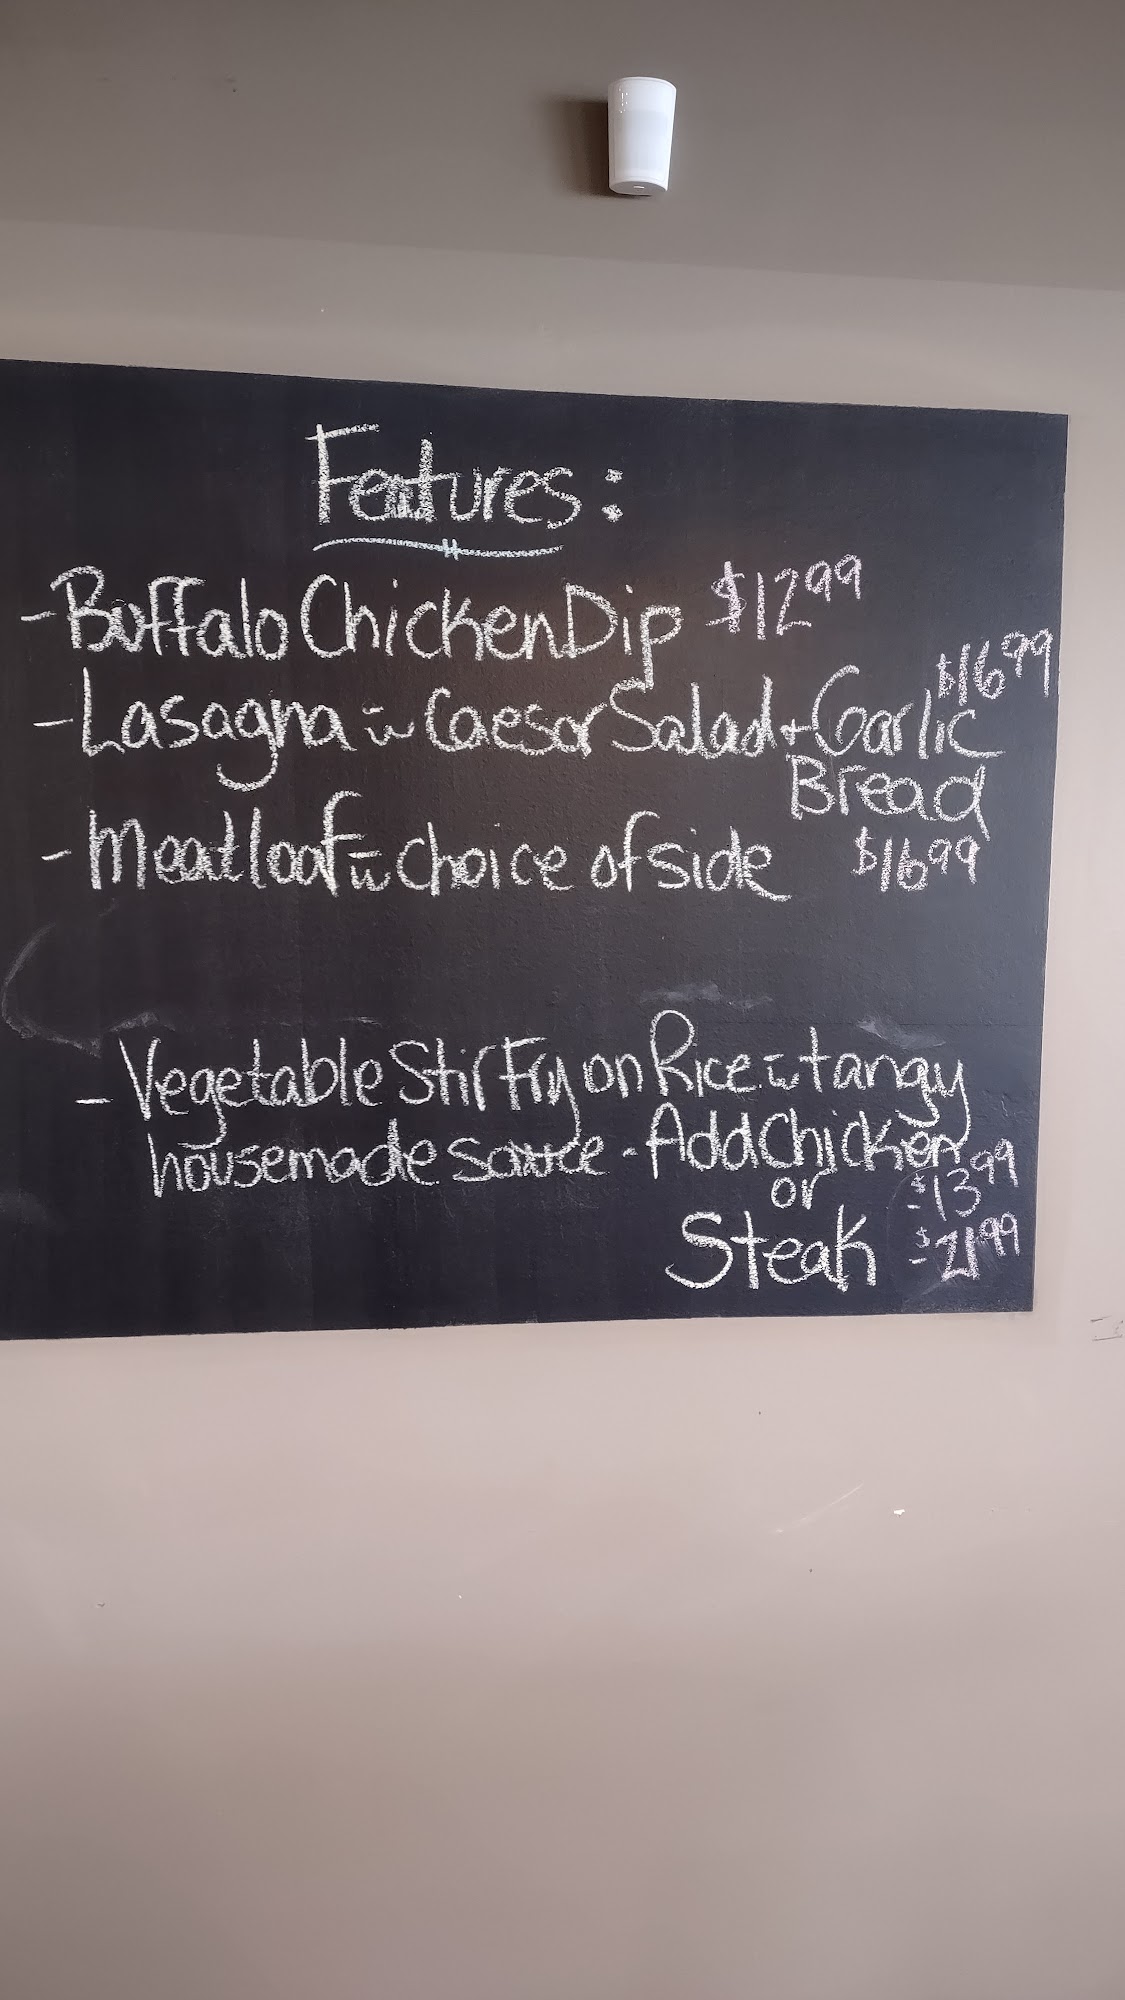 Features:
- Buffalo Chicken Dip $12.99
- Lasagna w̄ Caesar Salad + Garlic $16.99
Bread
- Meatloaf w̄ choice of side $16.99
- Vegetable Stir Fry on Rice w̄ tangy
housemade sauce - Add Chicken
or - $13.99
Steak - $21.99